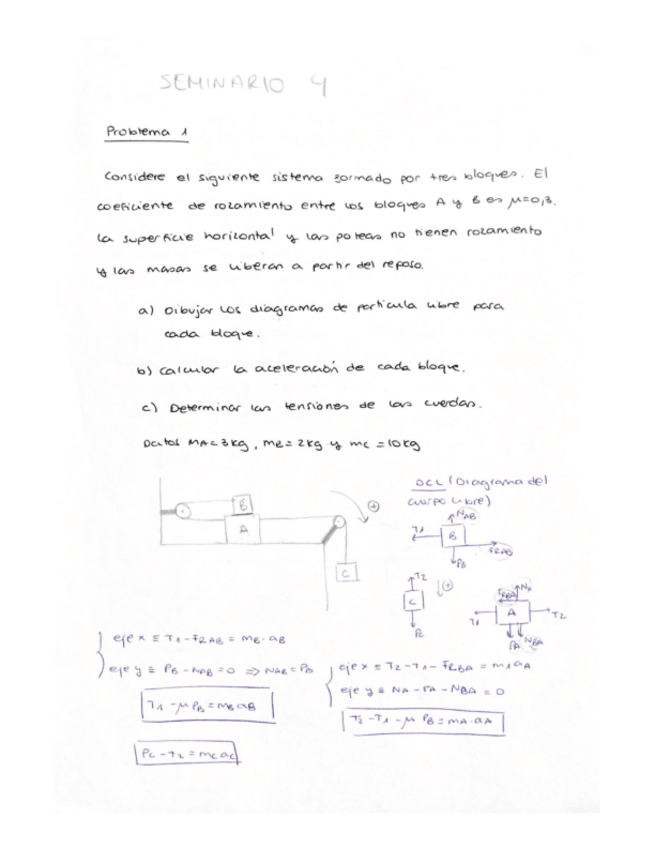 SEMINARIO 4
Problema 1
Considere el siguiente sistema formado por tres bloques. El
coeficiente de rozamiento entre los bloques A y B es μ=0,3.
La superficie horizontal y las poleas no tienen rozamiento
y las masas se liberan a partir del reposo.
a) Dibujar los diagramas de partícula libre para
cada bloque.
b) Calcular la aceleración de cada bloque.
c) Determinar las tensiones de las cuerdas.
Datos MA=3kg, mB=2kg y mc=10kg
DCL (Diagrama del
cuerpo libre)
B
A
C
+
NAB
T1
B
FRAB
PB
T2
C
+
PC
FRBA
NA
A
T1
T2
PA
NBA
eje x ≡ T1-FRAB = mB·aB
eje y ≡ PB-NAB=0 ⇒ NAB=PB
T1-μPB=mBaB
PC-T2=mcac
eje x ≡ T2-T1-FRBA = mAaA
eje y ≡ NA-PA-NBA=0
T2-T1-μPB=mA·aA